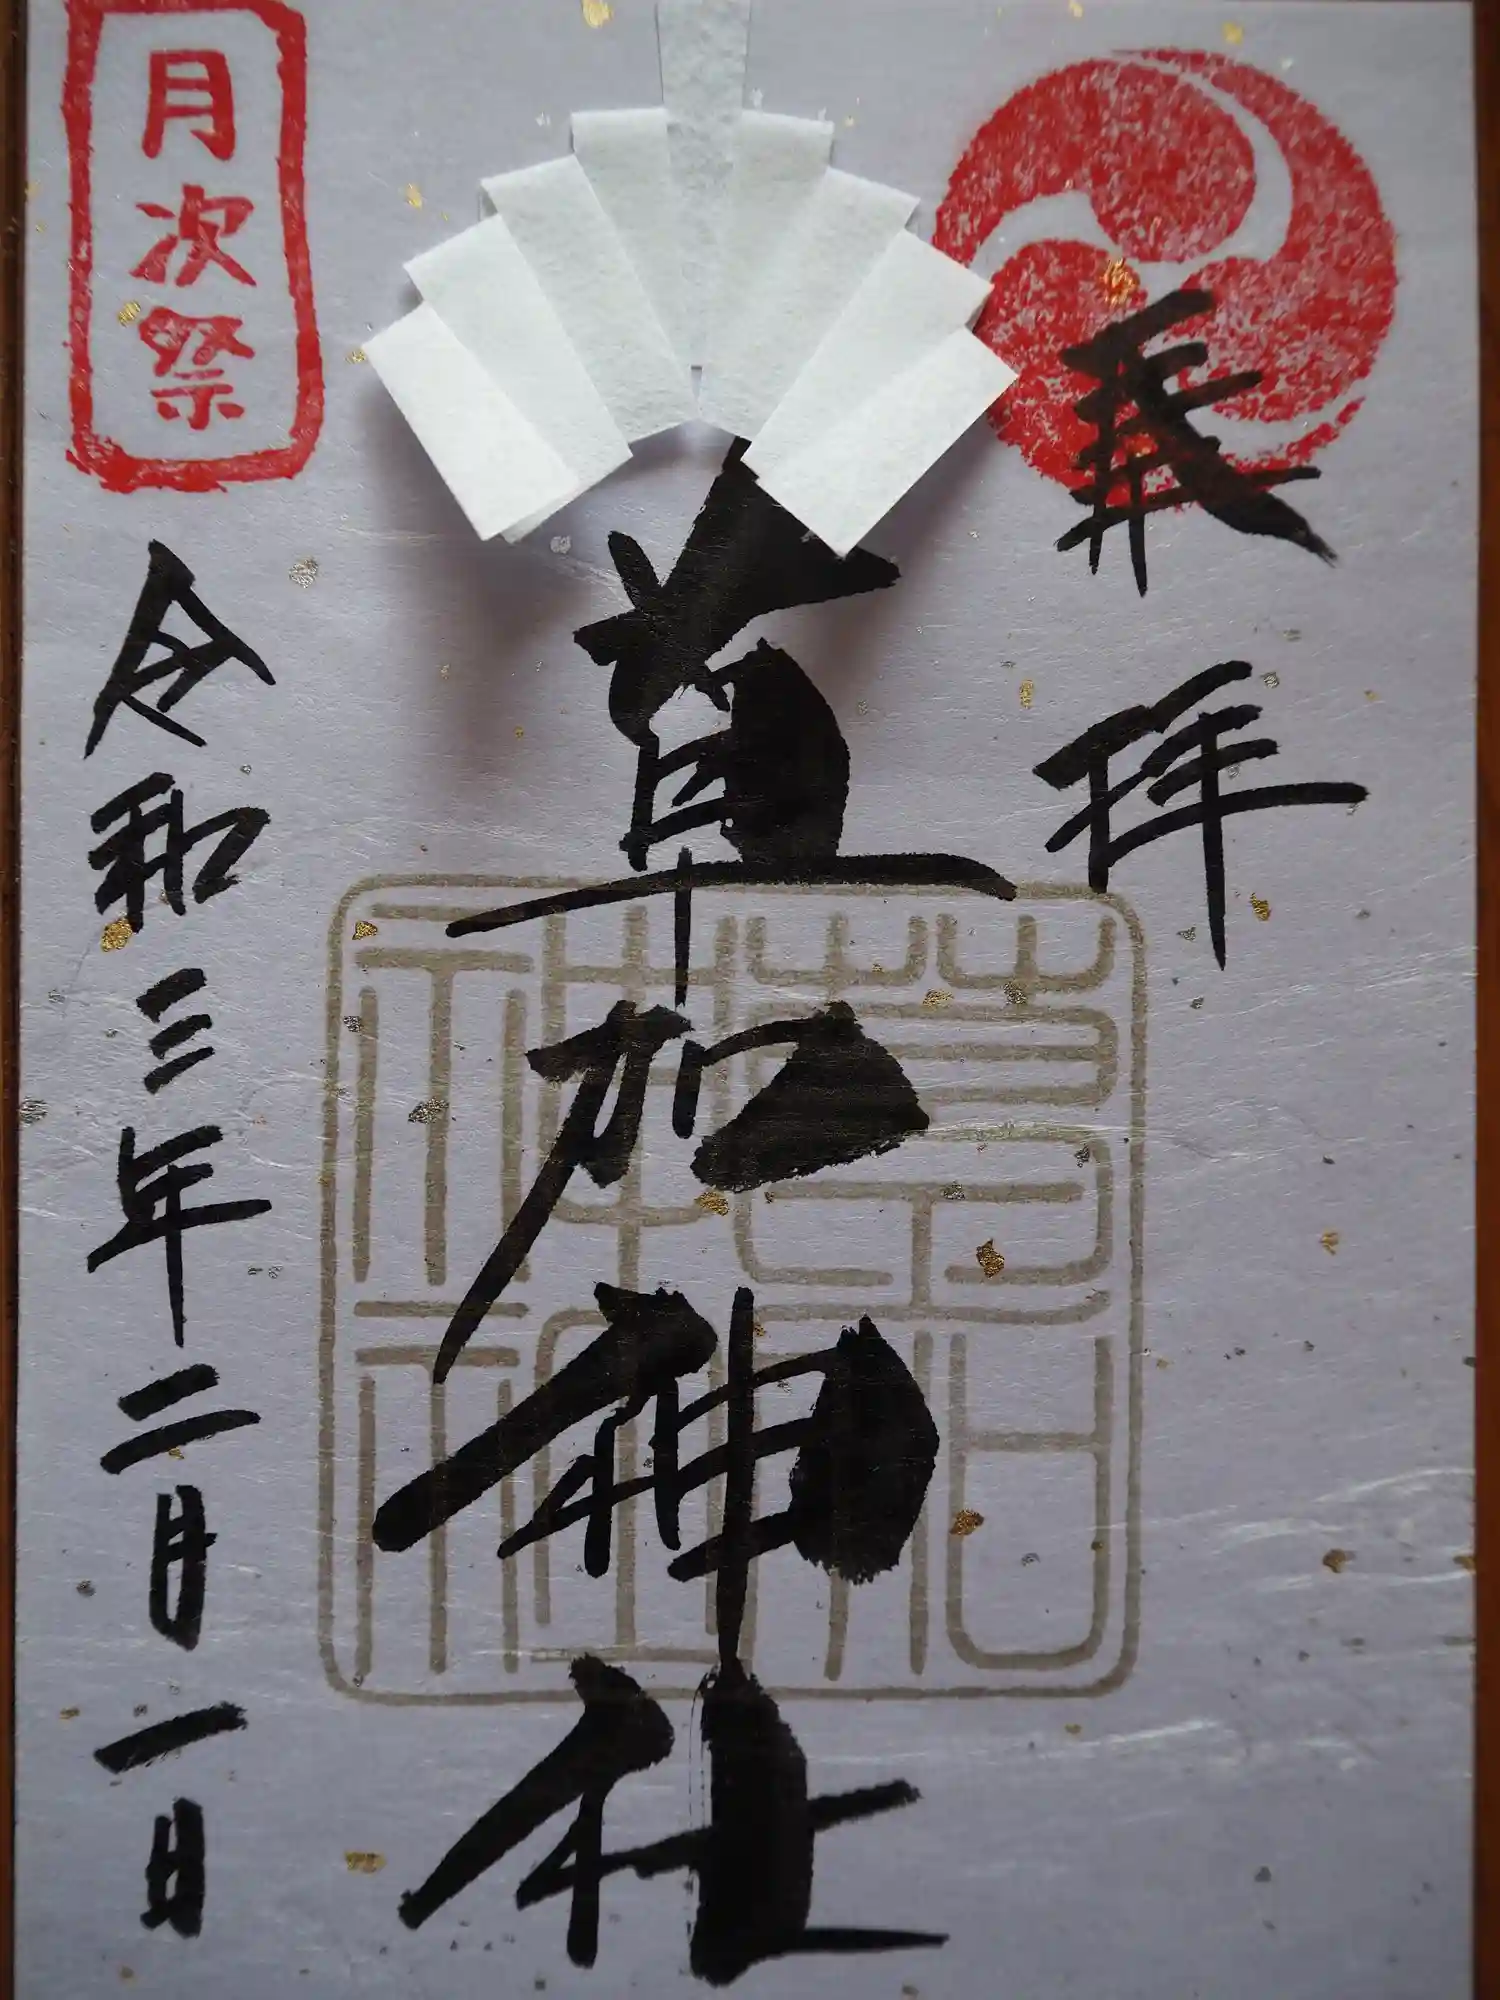 奉拝
草加神社
月次祭
令和三年二月一日